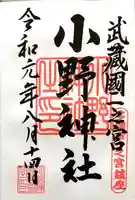 武蔵國一之宮
小野神社
令和元年八月十四日